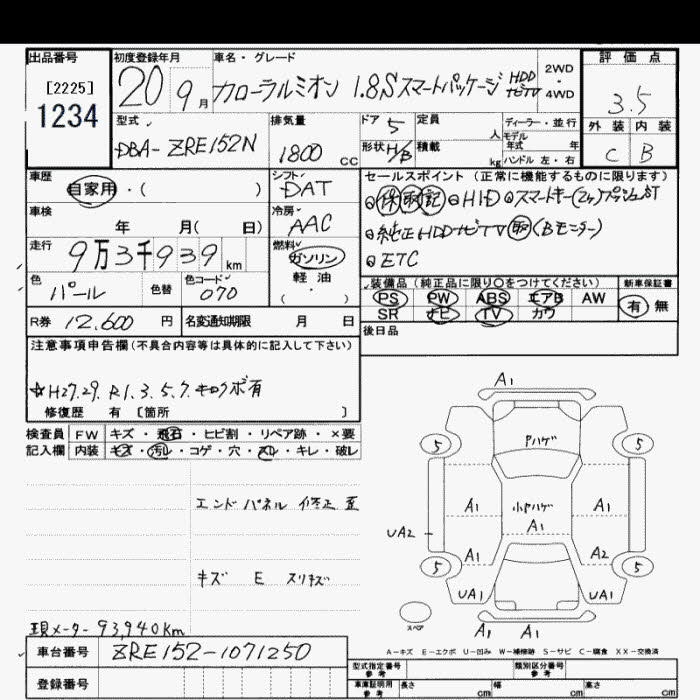 出品番号
[2225]
1234
初度登録年月
20 9 月
車名・グレード
カローラルミオン 1.8Sスマートパッケージ HDDナビTV
2WD・4WD
評価点
3.5
外装 内装
C B
型式
DBA-ZRE152N
排気量
1800 CC
ドア 5
形状 H/B
定員 人
積載 kg
ディーラー・並行
モデル年式 年
ハンドル 左・右
車歴
自家用・( )
シフト
DAT
車検
年 月( 日)
冷房
AAC
走行
9万3千939 km
燃料
ガソリン
軽油
( ・ )
色
パール
色替
色コード
070
R券 12,600 円
名変通知期限 月 日
セールスポイント(正常に機能するものに限ります)
◎保取記◎HID◎スマートキー(2ヶ)プッシュST
◎純正HDDナビTV取(Bモニター)
◎ETC
装備品(純正品に限り○をつけてください)
PS PW ABS エアB AW
SR ナビ TV カワ
新車保証書
有 無
後日品
注意事項申告欄(不具合内容等は具体的に記入して下さい)
☆H27.29.R1.3.5.7.キロクボ有
修復歴 有 〔箇所 〕
検査員記入欄
FW キズ・飛石・ヒビ割・リペア跡・×要
内装 キズ・汚レ・コゲ・穴・スレ・キレ・破レ
エンドパネル 修正 歪
キズ E スリキズ
現メーター 93,940km
車台番号 ZRE152-1071250
登録番号
A1
5 Pハゲ 5
A1 小ヤハゲ A1
A1
UA2
A1 A2
5 5
UA1 UA1
A1 A1
スペア
A-キズ E-エクボ U-凹み W-補修跡 S-サビ C-腐食 XX-交換済
型式指定番号 参考
類別区分番号 参考
車庫証明用 参考 長さ cm 幅 cm 高さ cm